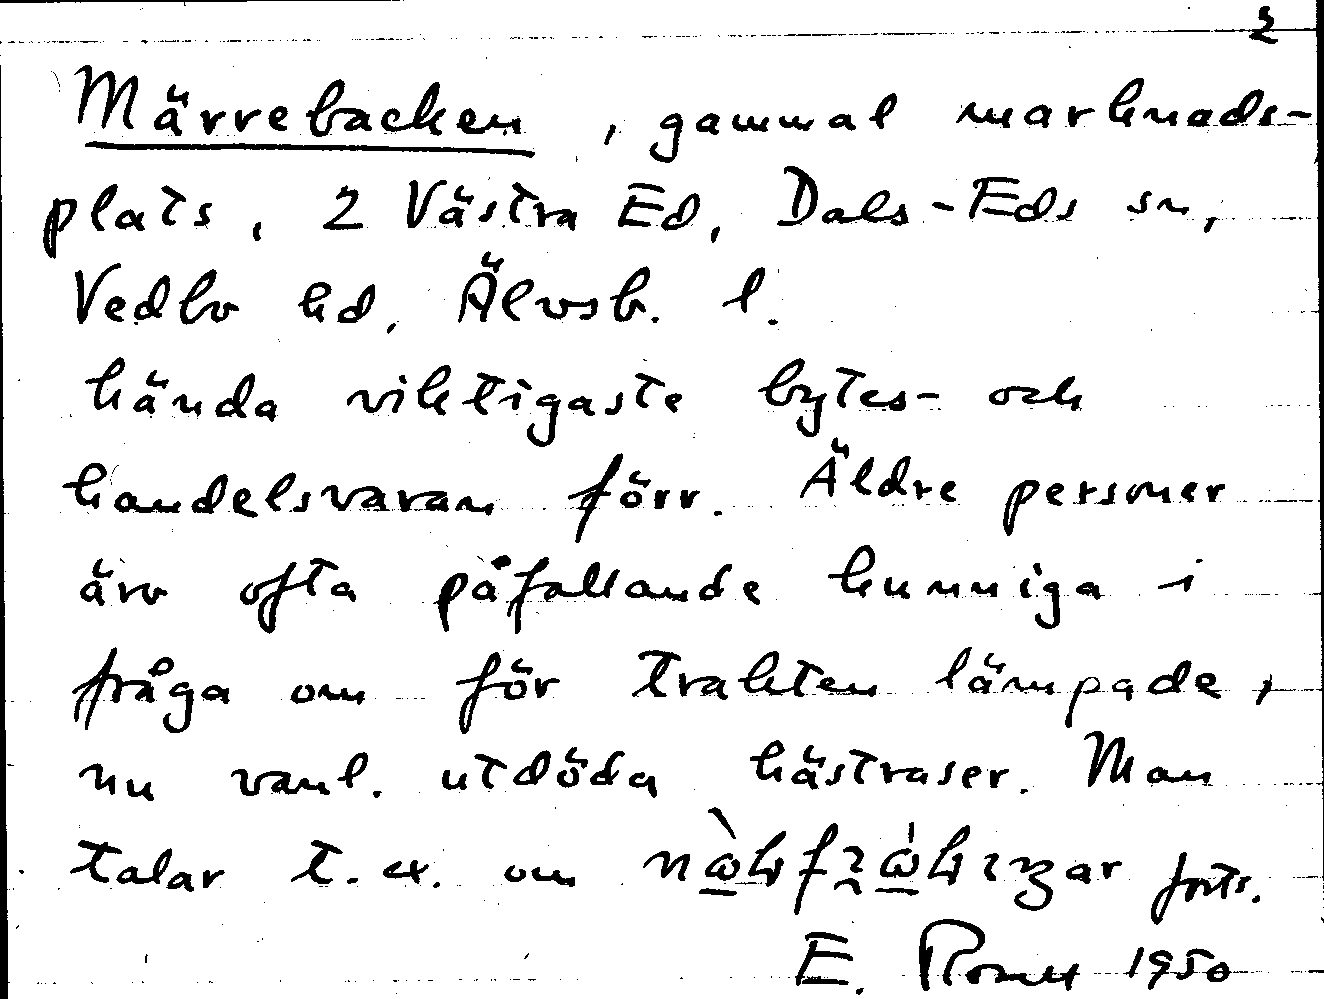 2
Märrebacken, gammal marknads-
plats, 2 Västra Ed, Dals-Eds sn,
Vedbo hd, Älvsb. l.
hända viktigaste bytes- och
handelsvaran förr. Äldre personer
äro ofta påfallande kunniga i
fråga om för trakten lämpade,
nu vanl. utdöda hästraser. Man
talar t.ex. om forts.
E. 1950